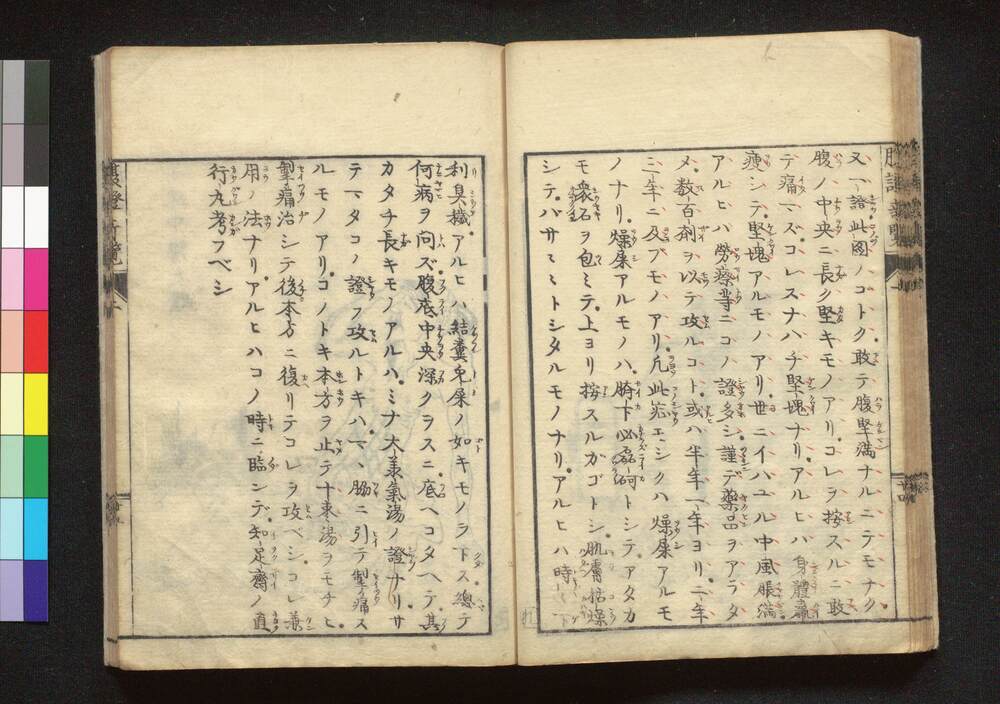 又一證此圖ノコトク敢テ腹堅満ナルニテモナク
腹ノ中央ニ長ク堅キモノアリコレヲ按スルニ敢
テ痛マズコレスナハチ堅塊ナリアルヒハ身體羸
痩シテ堅塊アルモノアリ世ニイハユル中風脹満
アルヒハ勞瘵等ニコノ證多シ謹デ藥品ヲアラタ
メ数百剤ヲ以テ攻ルコト或ハ半年一年ヨリ二年
三年ニ及ブモノアリ凡此症エシクハ燥屎アルモ
ノナリ燥屎アルモノハ臍下必磊砢トシテアタカ
モ衆石ヲ包ミテ上ヨリ按スルガゴトシ肌膚枯燥
シテバサミミトシタルモノナリアルヒハ時々下
利臭穢アルヒハ結糞兎屎ノ如キモノヲ下ス總テ
何病ヲ問ズ腹底中央深クヲスニ底ヘコタヘテ其
カタチ長キモノアルハミナ大羕氣湯ノ證ナリサ
テマタコノ證ヲ攻ルトキハマヽ脇ニ引テ掣痛ス
ルモノアリコノトキ本方ヲ止テ十棗湯ヲモチヒ
掣痛治シテ後本方ニ復リテコレヲ攻ベシコレ兼
用ノ法ナリアルヒハコノ時ニ臨ンデ知足齋ノ直
行丸考フベシ